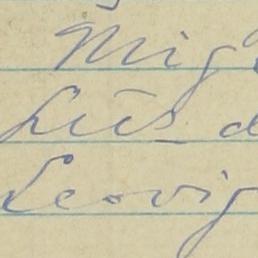 Mig
Luis d
Leovig